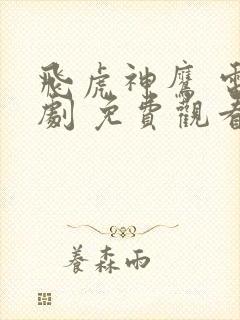 飛虎神鷹 電
劇 免費觀看
養森雨